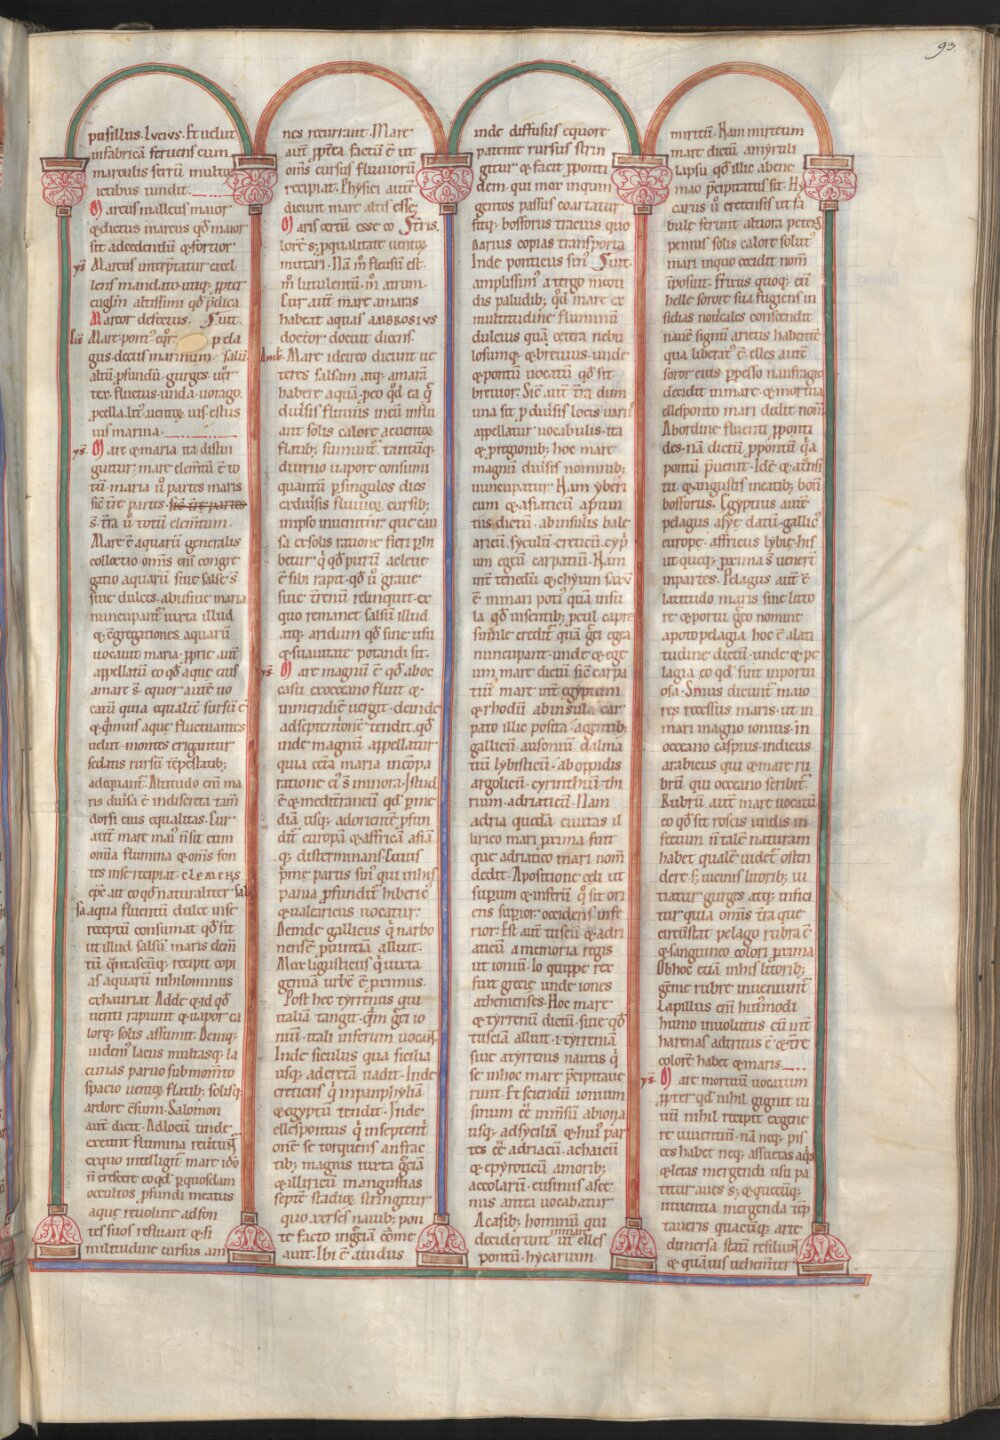 93
pusillus. Lucius. Et uelut
infabrica feruens cum
marculis ferrū multis
ictibus tundit.
Marcus malleus maior
& dictus marcus qđ maior
sit adcedendū & fortior
ys̄ Marcus interp̄tatur excel
lens mandato utiq; ꝓpter
euglm̄ altissimi qđ p̄dica
Marcor defectus.
Mare pont᷒ eqr̄ pela
gus decus marinum salū
altū ꝓfundū gurges
fluctus unda uorago
marina.
ys̄ Mare & maria ita distin
guntur mare elem̄tū ē to
tū maria ū partes maris
sic̄ t̄re partes sic̄ t̄re partes
s̄ t̄ra ū totū elem̄tum.
Mare ē aquarū generalis
collectio omnis eni congre
gatio aquarū siue salse s̄
siue dulces abusiue maria
nuncupant᷒ iuxta illud
& c̄gregationes aquarū
uocauit maria ꝓprie aut̄
appellatū eo qđ aque eius
amare s̄ equor autē uo
catū quia equalit̄ sursū ē
& q̄muis aque fluctuantes
uelut montes erigantur
sedatis rursū tēpestatib;
adequant᷒ Altitudo eni ma
ris diūsa ē indiscreta tam̄
dorsi eius equalitas. Cur
aut̄ mare mai᷒ n̄ fit cum
omīa flumina & om̄s fon
tes inse recipiat. CLEMENS
ep̄c ait eo qđ naturaliter sal
sa aqua fluentū dulce inse
receptū consumat qđ fit
ut illud salsū maris elem̄
tū q̄ntascūq; recipit copi
as aquarū nihilominus
exhauriat Adde & id qđ
uenti rapiunt & uapor ca
lorq; solis assumit. Deniq;
uidem᷒ lacus multasq; la
cunas paruo sub mom̄to
spacio uentoꝝ flatib; solisq;
ardore c̄sumi. Salomon
aut̄ dicit. Ad locū unde
exeunt flumina reūtunt᷒
ex quo intelligit̄ mare idō
n̄ crescere eo qđ ꝑ quosdam
occultos ꝓfundi meatus
aque reuolute ad fon
tes suos refluant & so
militudine cursus am
nes recurrant. Mare
aut̄ ꝓpt̄ea factū ē ut
om̄s cursus fluuiorū
recipiat. Physici autē
dicunt mare altis esse;
Maris certū esse co
lorē s; ꝑ qualitate uentoꝝ
mutari. Nā m̄ flauū est
m̄ lutulentū m̄ atrum.
Cur aut̄ mare amaras
habeat aquas AMBROSIVS
doctor docuit dicens.
Amb. Mare idcirco dicunt ue
teres salsam atq; amarā
habere aquā eo qđ ea q̄
diūsis fluuiis ineū influ
ant solis calore ac uentoꝝ
flatib; sumunt᷒ tantūq;
diurno uapore consumi
quantū ꝑ singulos dies
ex diūsis fluuioꝝ cursib;
in ipso inuehitur que cau
sa ex solis ratione fieri ꝑhi
betur q̄ qđ purū ac leue
ē sibi rapit qđ ū graue
siue t̄renū relinquit ex
quo remanet salsū illud
atq; aridum qđ sine usu
& suauitate potandi sit.
ys̄ Mare magnū ē qđ ab oc
casu ex occeano fluit &
in meridiē uergit deinde
ad septent̄onē tendit. qđ
inde magnū appellatur
quia cet̄a maria in cōpa
ratione ei᷒ s̄ minora. Istud
ē & mediterraneū qđ ꝑ me
diā usq; ad orientē ꝓfun
dit᷒ europā & affricā asiā
q; disterminans. Cuius
p̄me partis sin᷒ qui in his
pania ꝓfundit᷒ hiberic᷒
& ualearicus uocatur.
Deinde gallicus q̄ narbo
nensē ꝓuintiā alluit.
Mox ligusticus q̄ iuxta
genuā urbē ē proximus.
Post hec tyrrenus qui
italiā tangit q̄m greci io
niū itali inferum uocant
Inde siculus qua sicilia
usq; ad cretā uadit. Inde
creticus q̄ in panphyliā
& egyptū tendit. Inde
ellespontus qui in septent̄
onē se torquens anfrac
tib; magnis iuxta greciā
& illiricū in angustias
septē stadioꝝ stringitur
quo xerses nauib; pon
te facto in greciā cōme
auit. Ibi ē auidus
inde diffusus equore
patente rursus strin
gitur & facit ꝓponti
dem. qui mox in quin
gentos passus coartatur
fitq; bosforus tracius quo
darius copias transporta
Inde ponticus sin᷒
amplissim᷒ a tergo meoti
dis paludib; qđ mare ex
multitudine fluminū
dulcius quā cetera nebu
losumq; & breuius. unde
& pontū uocatū qđ sit
breuior. Sic̄ aut̄ t̄ra dum
una sit ꝑ diūsis locis uariis
appellatur uocabulis ita
& ꝑ regionib; hoc mare
magnū diūsis nominib;
nuncupatur. Nam yberi
cum & asiaticū a ꝓuin
tiis dictū. ab insulis bale
aricū. syculū. creticū. cyp̄
um egeū carpatiū. Nam
int̄ tenedū & chyum saxū
ē in mari poti᷒ quā insu
la qđ uisentib; ꝓcul capre
simile credit᷒ quā greci egea
nuncupant. unde & ege
um mare dictū sic̄ carpa
tiū mare int̄ egyptum
& rhodū ab insula car
pato illic posita. a gentib;
gallicū ausoniū dalma
tiū lybisticū. ab oppidis
argolicū. cyrinthiū. thi
rium. adriaticū. Nam
adria quedā ciuitas il
lirico mari ꝓxima fuit
que adriatico mari nom̄
dedit. A positione celi ut
suꝑum & inferū q̄ sit ori
ens suꝑior. occidens infe
rior. Est aut̄ tuscū & adri
aticū a memoria regis
ut ioniū. Io quippe rex
fuit grecie unde iones
athenienses. Hoc mare
& tyrrenū dictū siue qđ
tusciā alluit. i. tyrreniā
siue a tyrrenis nautis q̄
se in hoc mare p̄cipitaue
runt. Et sciendū ionium
sinum ēē inm̄sū ab iona
usq; ad syciliā & hui᷒ par
tes ēē adriacū. achaicū
& epyroticū a morib;
accolarū. euxinus asce
nus antea uocabatur
A casib; hominū qui
deciderunt in mare ut elles
pontū. hycarum.
mirteū. Nam mirteum
mare dictū a myrtili
lapsu qđ illic ab eno
mao p̄cipitatus sit. Hy
carus ū cretensis ut fa
bule ferunt altiora petens
pennis solis calore solut᷒
mari in quo cecidit nom̄
iposuit. frixus quoq; cū
helle sorore sua fugiens in
sidias nouercales conscendit
nauē signū arietis habentē
qua liberat᷒ ē. elles autē
soror eius ꝑpesso naufragio
decidit in mare & mortua
ellesponto mari dedit nom̄
A bordine fluenti ꝓponti
des. nā dictū ꝓpontū q̄a
pontū p̄uenit. Idē & a t̄nsi
tu & angustis meatib; boū
bosforus. Egyptius autē
pelagus asye datū. gallic᷒
europe. affricus lybie. his
ut quicq; ꝓxima s̄ uenert̄
in partes. Pelagus aut̄ ē
latitudo maris sine litto
re & portu greco nomine
apo to pelagia hoc ē a lati
tudine dictū. unde & pe
lagia eo qđ sint inportu
osa. Sinus dicunt᷒ maio
res recessus maris. ut in
mari magno ionius. in
occeano caspius. indicus.
arabicus qui & mare ru
brū qui occeano scribit᷒.
Rubrū aut̄ mare uocatū
eo qđ sit roseis undis in
fectum n̄ talē naturam
habet qualē uidet᷒ osten
dere. s; uicinis litorib; ui
tiatur gurges atq; infici
tur quia omīs t̄ra que
circūstat pelago rubra ē
& sanguineo colori ꝓxima
Ob hoc etiā in his litorib;
gēme rubre inueniunt᷒
Lapillus eni hui᷒modi
humo inuolutus cū int̄
harenas adtritus ē & t̄re
colorē habet & maris.
ys̄ Mare mortuū uocatum
ꝓpter qđ nihil gignit ui
uū nihil recipit ex gene
re uiuentiū. nā neq; pis
ces habet neq; assuetas aqis
& letas mergendi usu pa
titur aues s; & quecūq;
uiuentia mergenda tēp
taueris quacūq; arte
dimersa statī resiliunt
& quāuis uehem̄ter